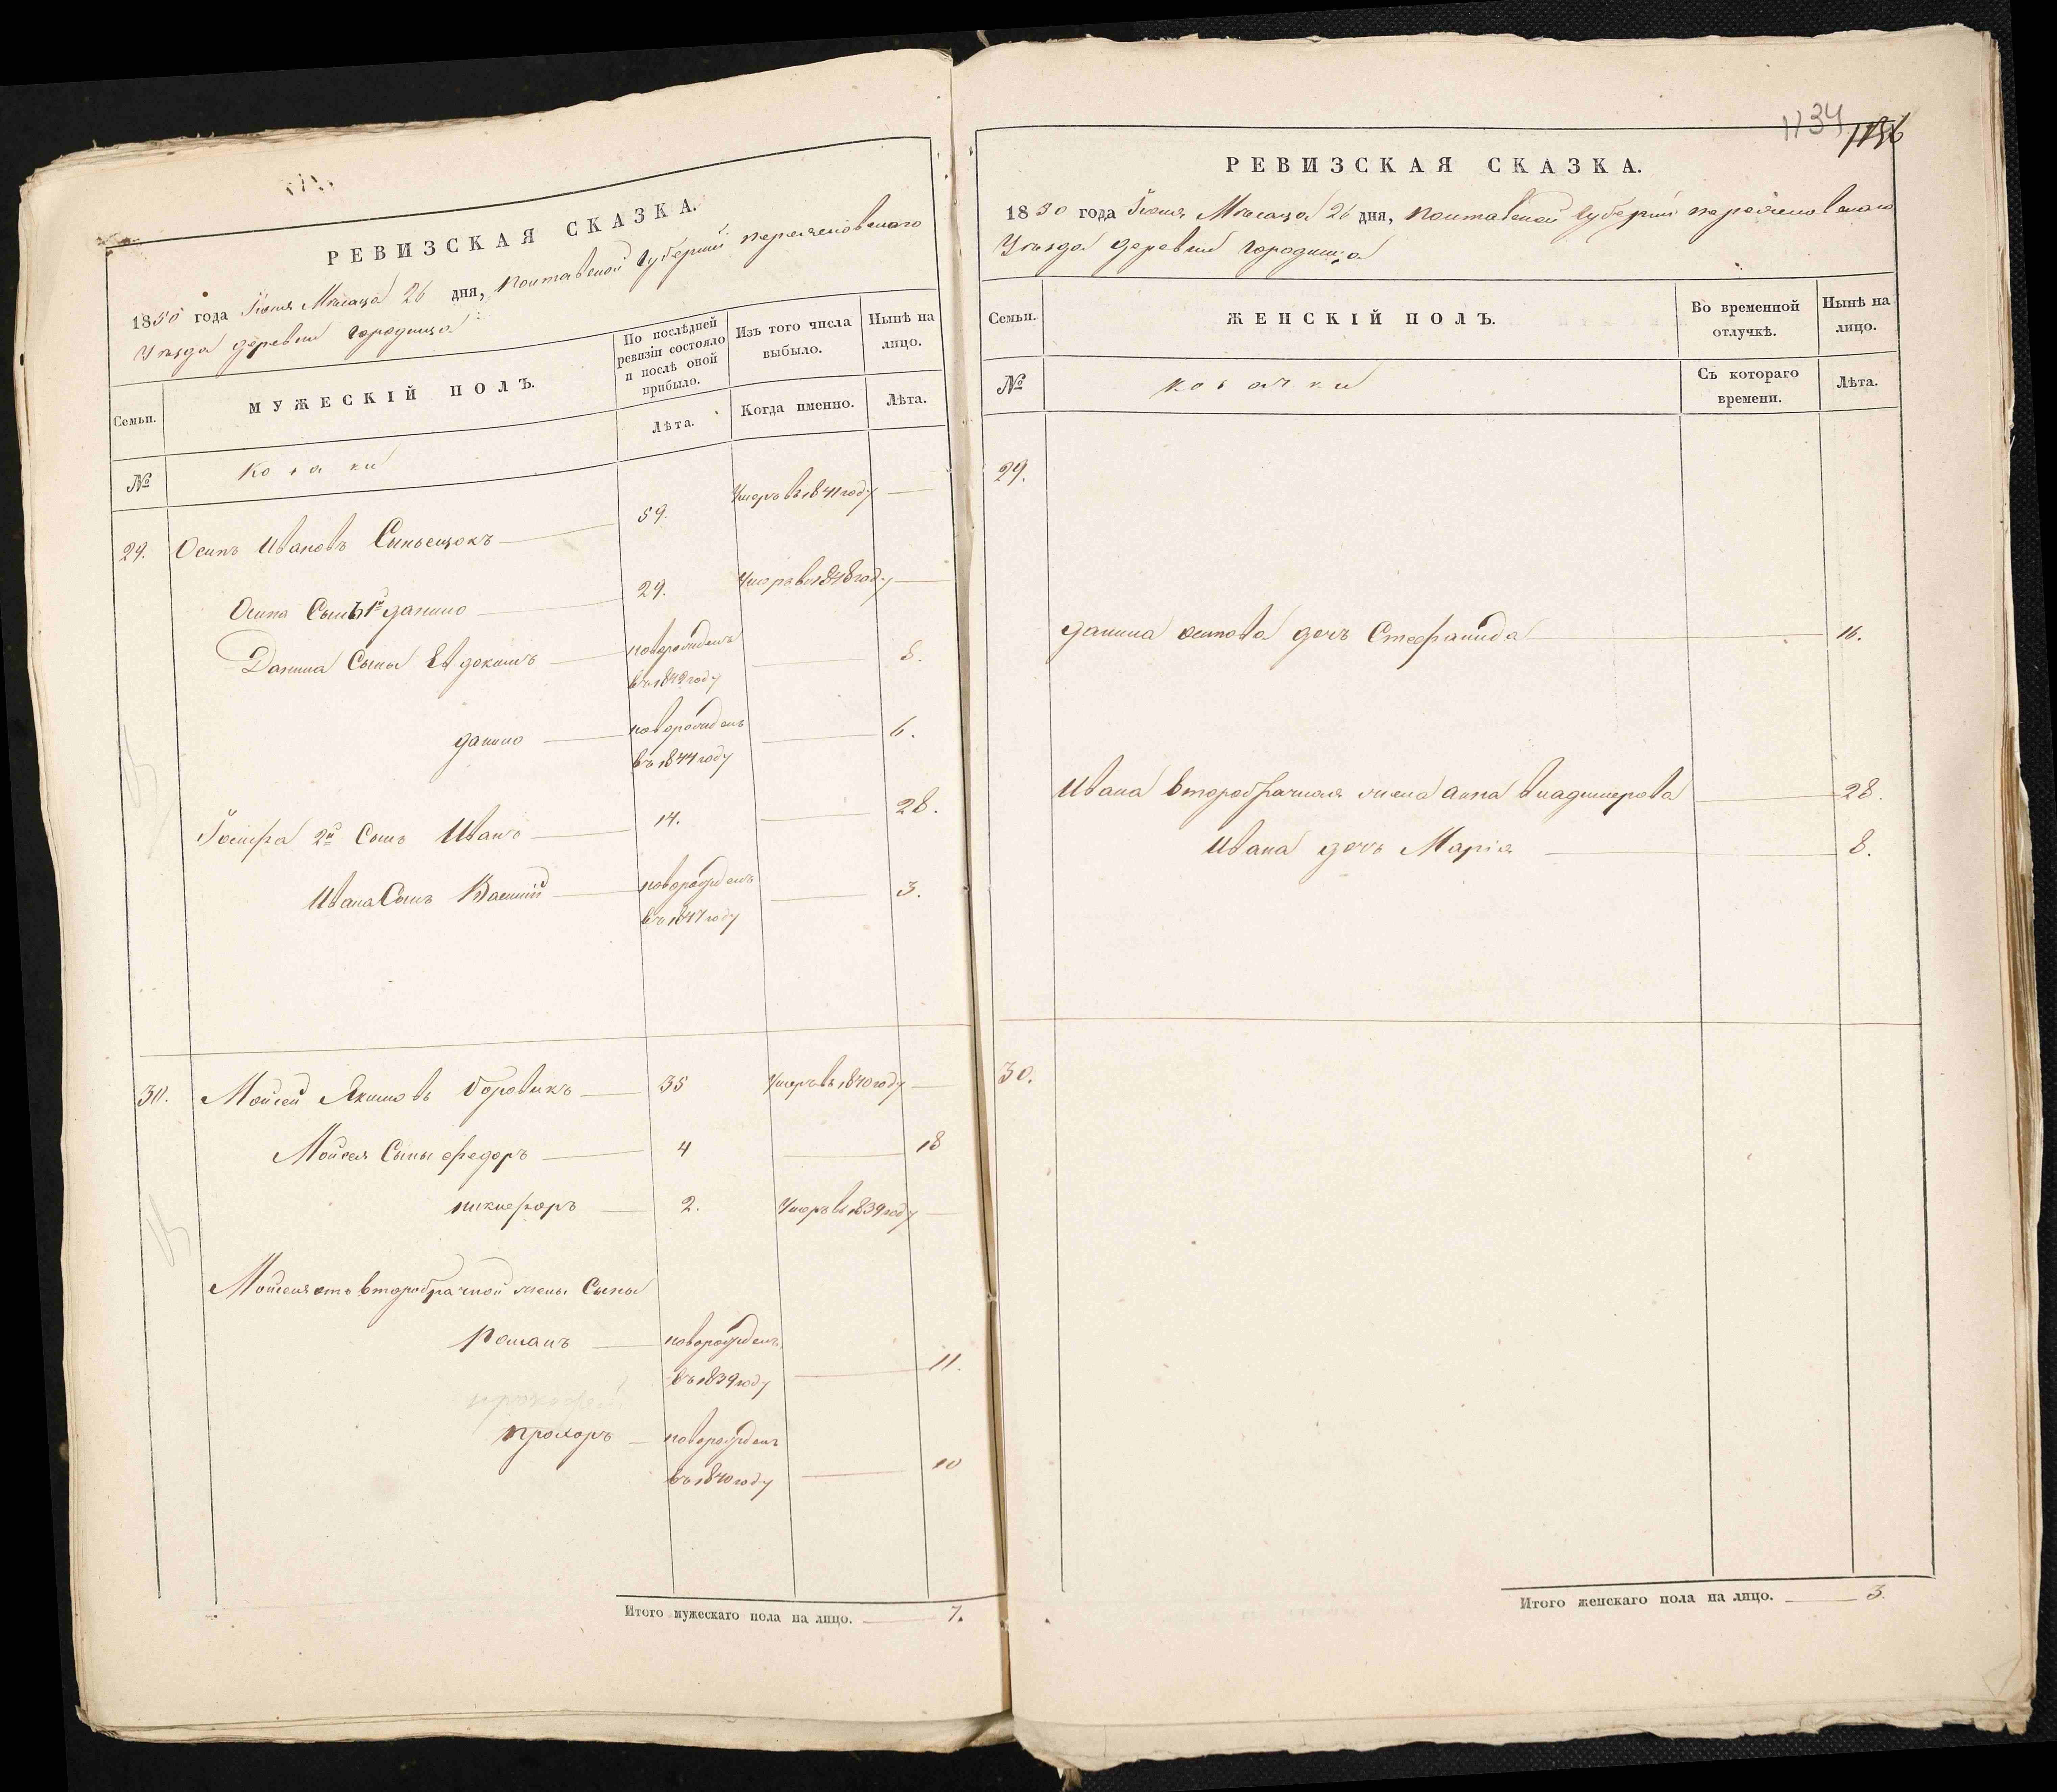 РЕВИЗСКАЯ СКАЗКА.
1850 года Іюня Мѣсяца 26 дня, Полтавской Губерніи переяславского
Уѣзда деревни Городища
Семьи.
МУЖЕСКІЙ ПОЛЪ.
По послѣдней ревизіи состояло и послѣ оной прибыло.
Изъ того числа выбыло.
Нынѣ на лицо.
№
Козаки
Лѣта.
Когда именно.
Лѣта.
29. Осипъ Ивановъ 59. Умеръ въ 1841 году
Осипа Сынъ 1й данило 29. Умеръ въ 1848 году
Данила Сыны Евдокимъ новорожденъ 8.
въ 1842 году
данило новорожденъ 6.
въ 1844 году
2й Сынъ Иванъ 14. 28.
Ивана Сынъ Василий новорожденъ 3.
въ 1847 году
30. Мойсей Якимовъ боровикъ 35 Умеръ въ 1840 году
Мойсея Сыны федоръ 4 18
никифоръ 2. Умеръ въ 1839 году
Мойсея отъ второбрачной жены Сыны
романъ новорожденъ 11.
въ 1839 году
прохоръ новорожденъ 10
въ 1840 году
Итого мужескаго пола на лицо. 7.
1134 1136
РЕВИЗСКАЯ СКАЗКА.
1850 года Іюня Мѣсяца 26 дня, полтавской губерніи переяславского
Уѣзда деревни городища
Семьи.
ЖЕНСКІЙ ПОЛЪ.
Во временной отлучкѣ.
Нынѣ на лицо.
№
козачки
Съ котораго времени.
Лѣта.
29.
данила осипова дочь Стефанида 16.
Ивана второбрачная жена анна владимерова 28.
Ивана дочь Марія 8.
30.
Итого женскаго пола на лицо. 3.